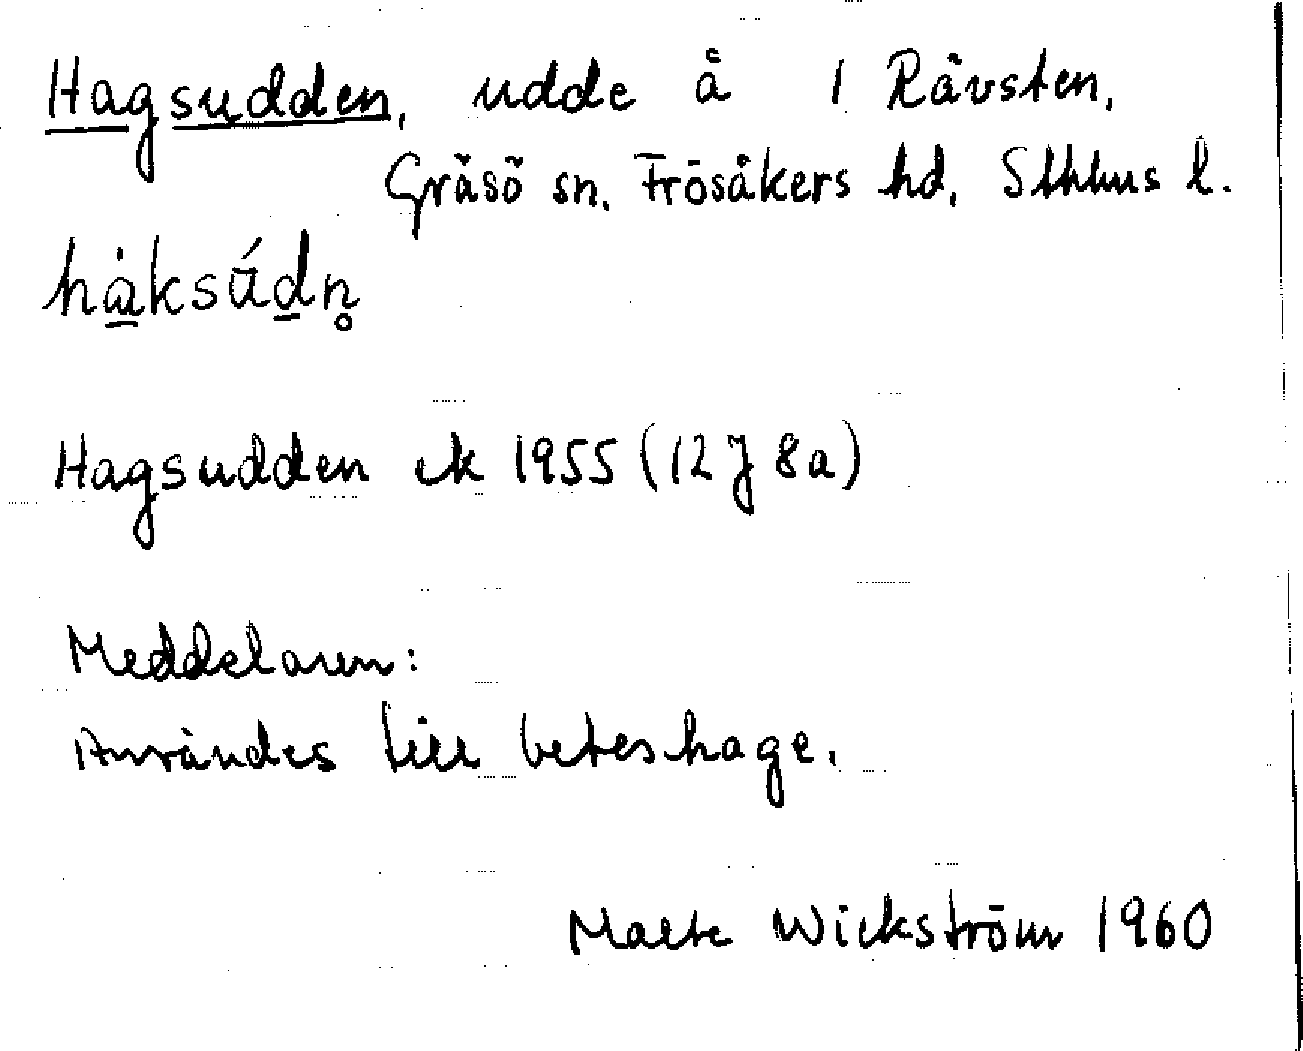 Hagsudden, udde å 1 Rävsten,
Gräsö sn. Frösåkers hd, Sthlms l.
hàksúdn̥
Hagsudden ek 1955 (12 J 8a)
Meddelaren:
Användes till beteshage.
Malte Wickström 1960